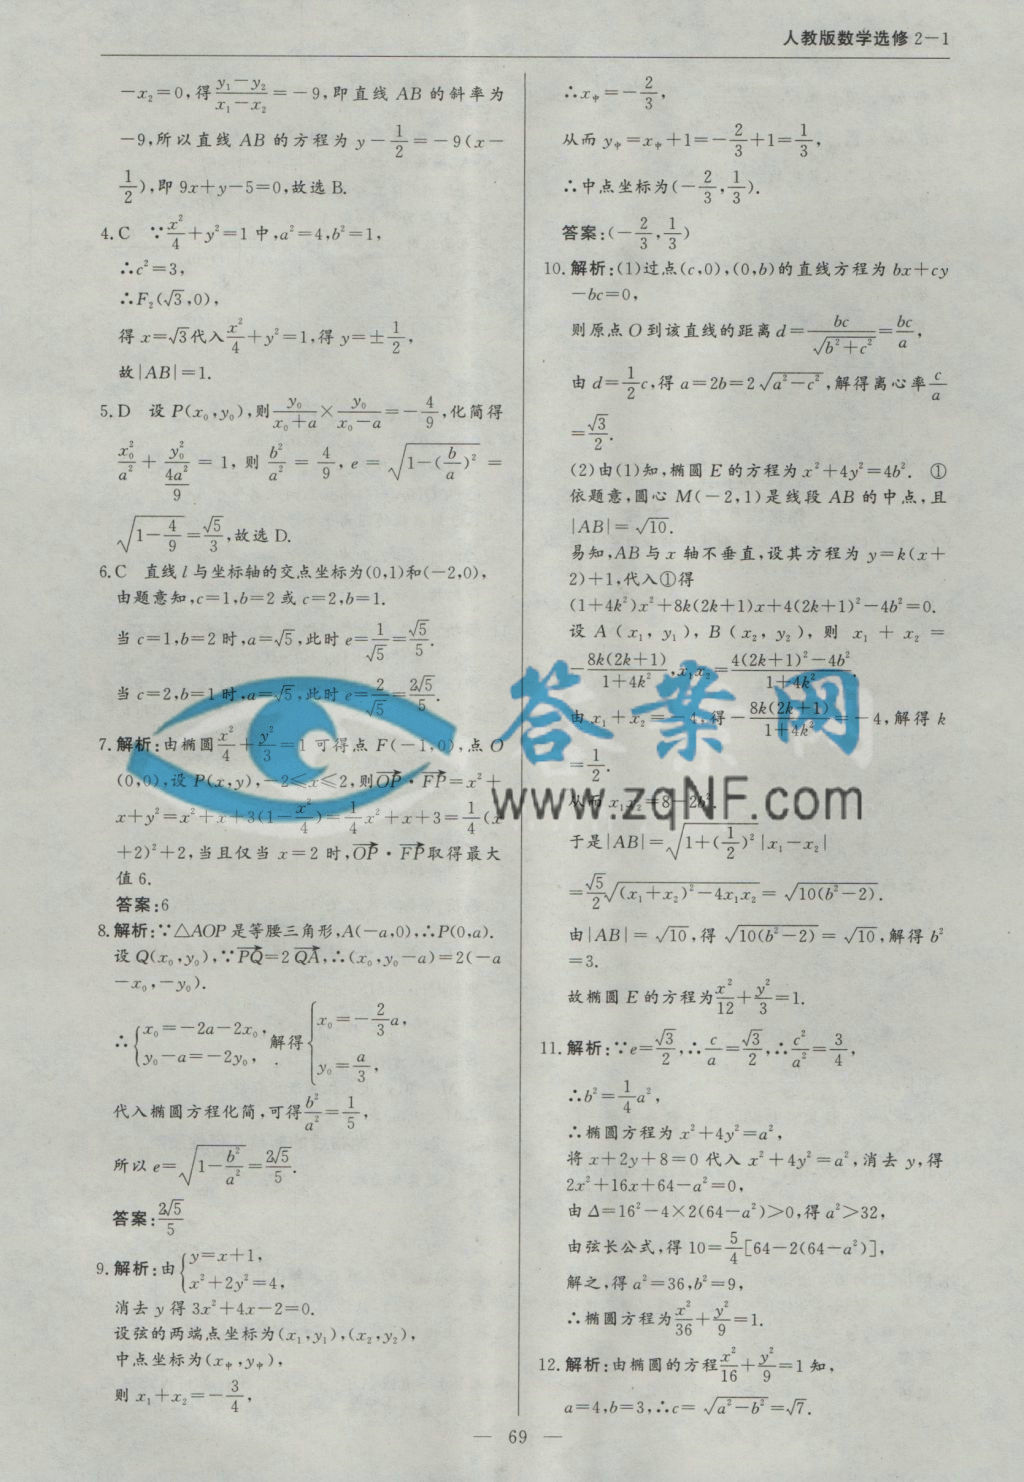 人教版数学选修2-1
-x₂=0,得(y₁-y₂)/(x₁-x₂)=-9,即直线AB的斜率为
-9,所以直线AB的方程为y-1/2=-9(x-
1/2),即9x+y-5=0,故选B.
4.C ∵x²/4+y²=1中,a²=4,b²=1,
∴c²=3,
∴F₂(√3,0),
得x=√3代入x²/4+y²=1,得y=±1/2,
故|AB|=1.
5.D 设P(x₀,y₀),则y₀/(x₀+a)×y₀/(x₀-a)=-4/9,化简得
x₀²/a²+y₀²/(4a²/9)=1,则b²/a²=4/9,e=√(1-(b/a)²)=
√(1-4/9)=√5/3,故选D.
6.C 直线l与坐标轴的交点坐标为(0,1)和(-2,0),
由题意知,c=1,b=2或c=2,b=1.
当c=1,b=2时,a=√5,此时e=1/√5=√5/5.
当c=2,b=1时,a=√5,此时e=2/√5=2√5/5.
7.解析:由椭圆x²/4+y²/3=1可得点F(-1,0),点O
(0,0),设P(x,y),-2≤x≤2,则OP·FP=x²+
x+y²=x²+x+3(1-x²/4)=1/4x²+x+3=1/4(x
+2)²+2,当且仅当x=2时,OP·FP取得最大
值6.
答案:6
8.解析:∵△AOP是等腰三角形,A(-a,0),∴P(0,a).
设Q(x₀,y₀),∵PQ=2QA,∴(x₀,y₀-a)=2(-a
-x₀,-y₀).
∴{x₀=-2a-2x₀, y₀-a=-2y₀, 解得{x₀=-2/3a, y₀=a/3,
代入椭圆方程化简,可得b²/a²=1/5,
所以e=√(1-b²/a²)=2√5/5.
答案:2√5/5
9.解析:由{y=x+1, x²+2y²=4,
消去y得3x²+4x-2=0.
设弦的两端点坐标为(x₁,y₁),(x₂,y₂),
中点坐标为(x中,y中),
则x₁+x₂=-3/4,
∴x中=-2/3,
从而y中=x中+1=-2/3+1=1/3,
∴中点坐标为(-2/3,1/3).
答案:(-2/3,1/3)
10.解析:(1)过点(c,0),(0,b)的直线方程为bx+cy
-bc=0,
则原点O到该直线的距离d=bc/√(b²+c²)=bc/a,
由d=1/2c,得a=2b=2√(a²-c²),解得离心率c/a
=√3/2.
(2)由(1)知,椭圆E的方程为x²+4y²=4b². ①
依题意,圆心M(-2,1)是线段AB的中点,且
|AB|=√10.
易知,AB与x轴不垂直,设其方程为y=k(x+
2)+1,代入①得
(1+4k²)x²+8k(2k+1)x+4(2k+1)²-4b²=0.
设A(x₁,y₁),B(x₂,y₂),则x₁+x₂=
-8k(2k+1)/(1+4k²),x₁x₂=(4(2k+1)²-4b²)/(1+4k²).
由x₁+x₂=-4,得-8k(2k+1)/(1+4k²)=-4,解得k
=1/2.
从而x₁x₂=8-2b².
于是|AB|=√(1+(1/2)²)|x₁-x₂|
=√5/2√((x₁+x₂)²-4x₁x₂)=√(10(b²-2)).
由|AB|=√10,得√(10(b²-2))=√10,解得b²
=3.
故椭圆E的方程为x²/12+y²/3=1.
11.解析:∵e=√3/2,∴c/a=√3/2,∴c²/a²=3/4,
∴b²=1/4a²,
∴椭圆方程为x²+4y²=a²,
将x+2y+8=0代入x²+4y²=a²,消去y,得
2x²+16x+64-a²=0,
由Δ=16²-4×2(64-a²)>0,得a²>32,
由弦长公式,得10=5/4[64-2(64-a²)],
解之,得a²=36,b²=9,
∴椭圆方程为x²/36+y²/9=1.
12.解析:由椭圆的方程x²/16+y²/9=1知,
a=4,b=3,∴c=√(a²-b²)=√7.
— 69 —
答案网
www.zqNF.com